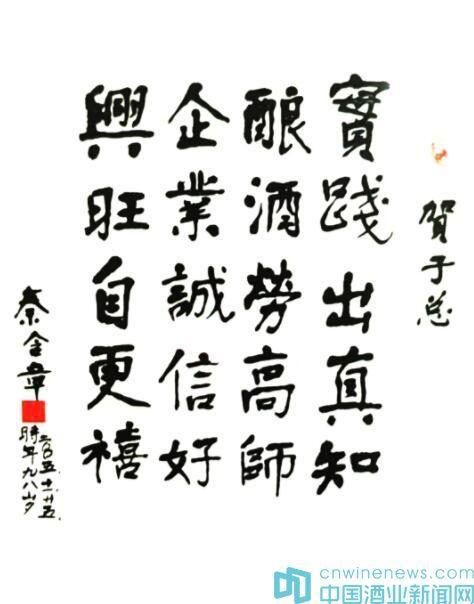 賀子总
實踐出真知
酿酒勞高師
企業誠信好
興旺自更禧
秦含章
二〇〇五.十一.廿五.
時年九八岁
cnwinenews.com
中国酒业新闻网